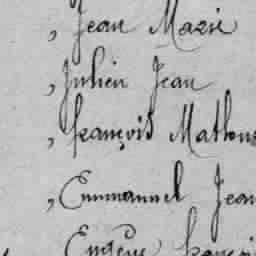 , Jean Marie
, Julien Jean
, françois Mathur
, Emmanuel Jean
Eugène françois